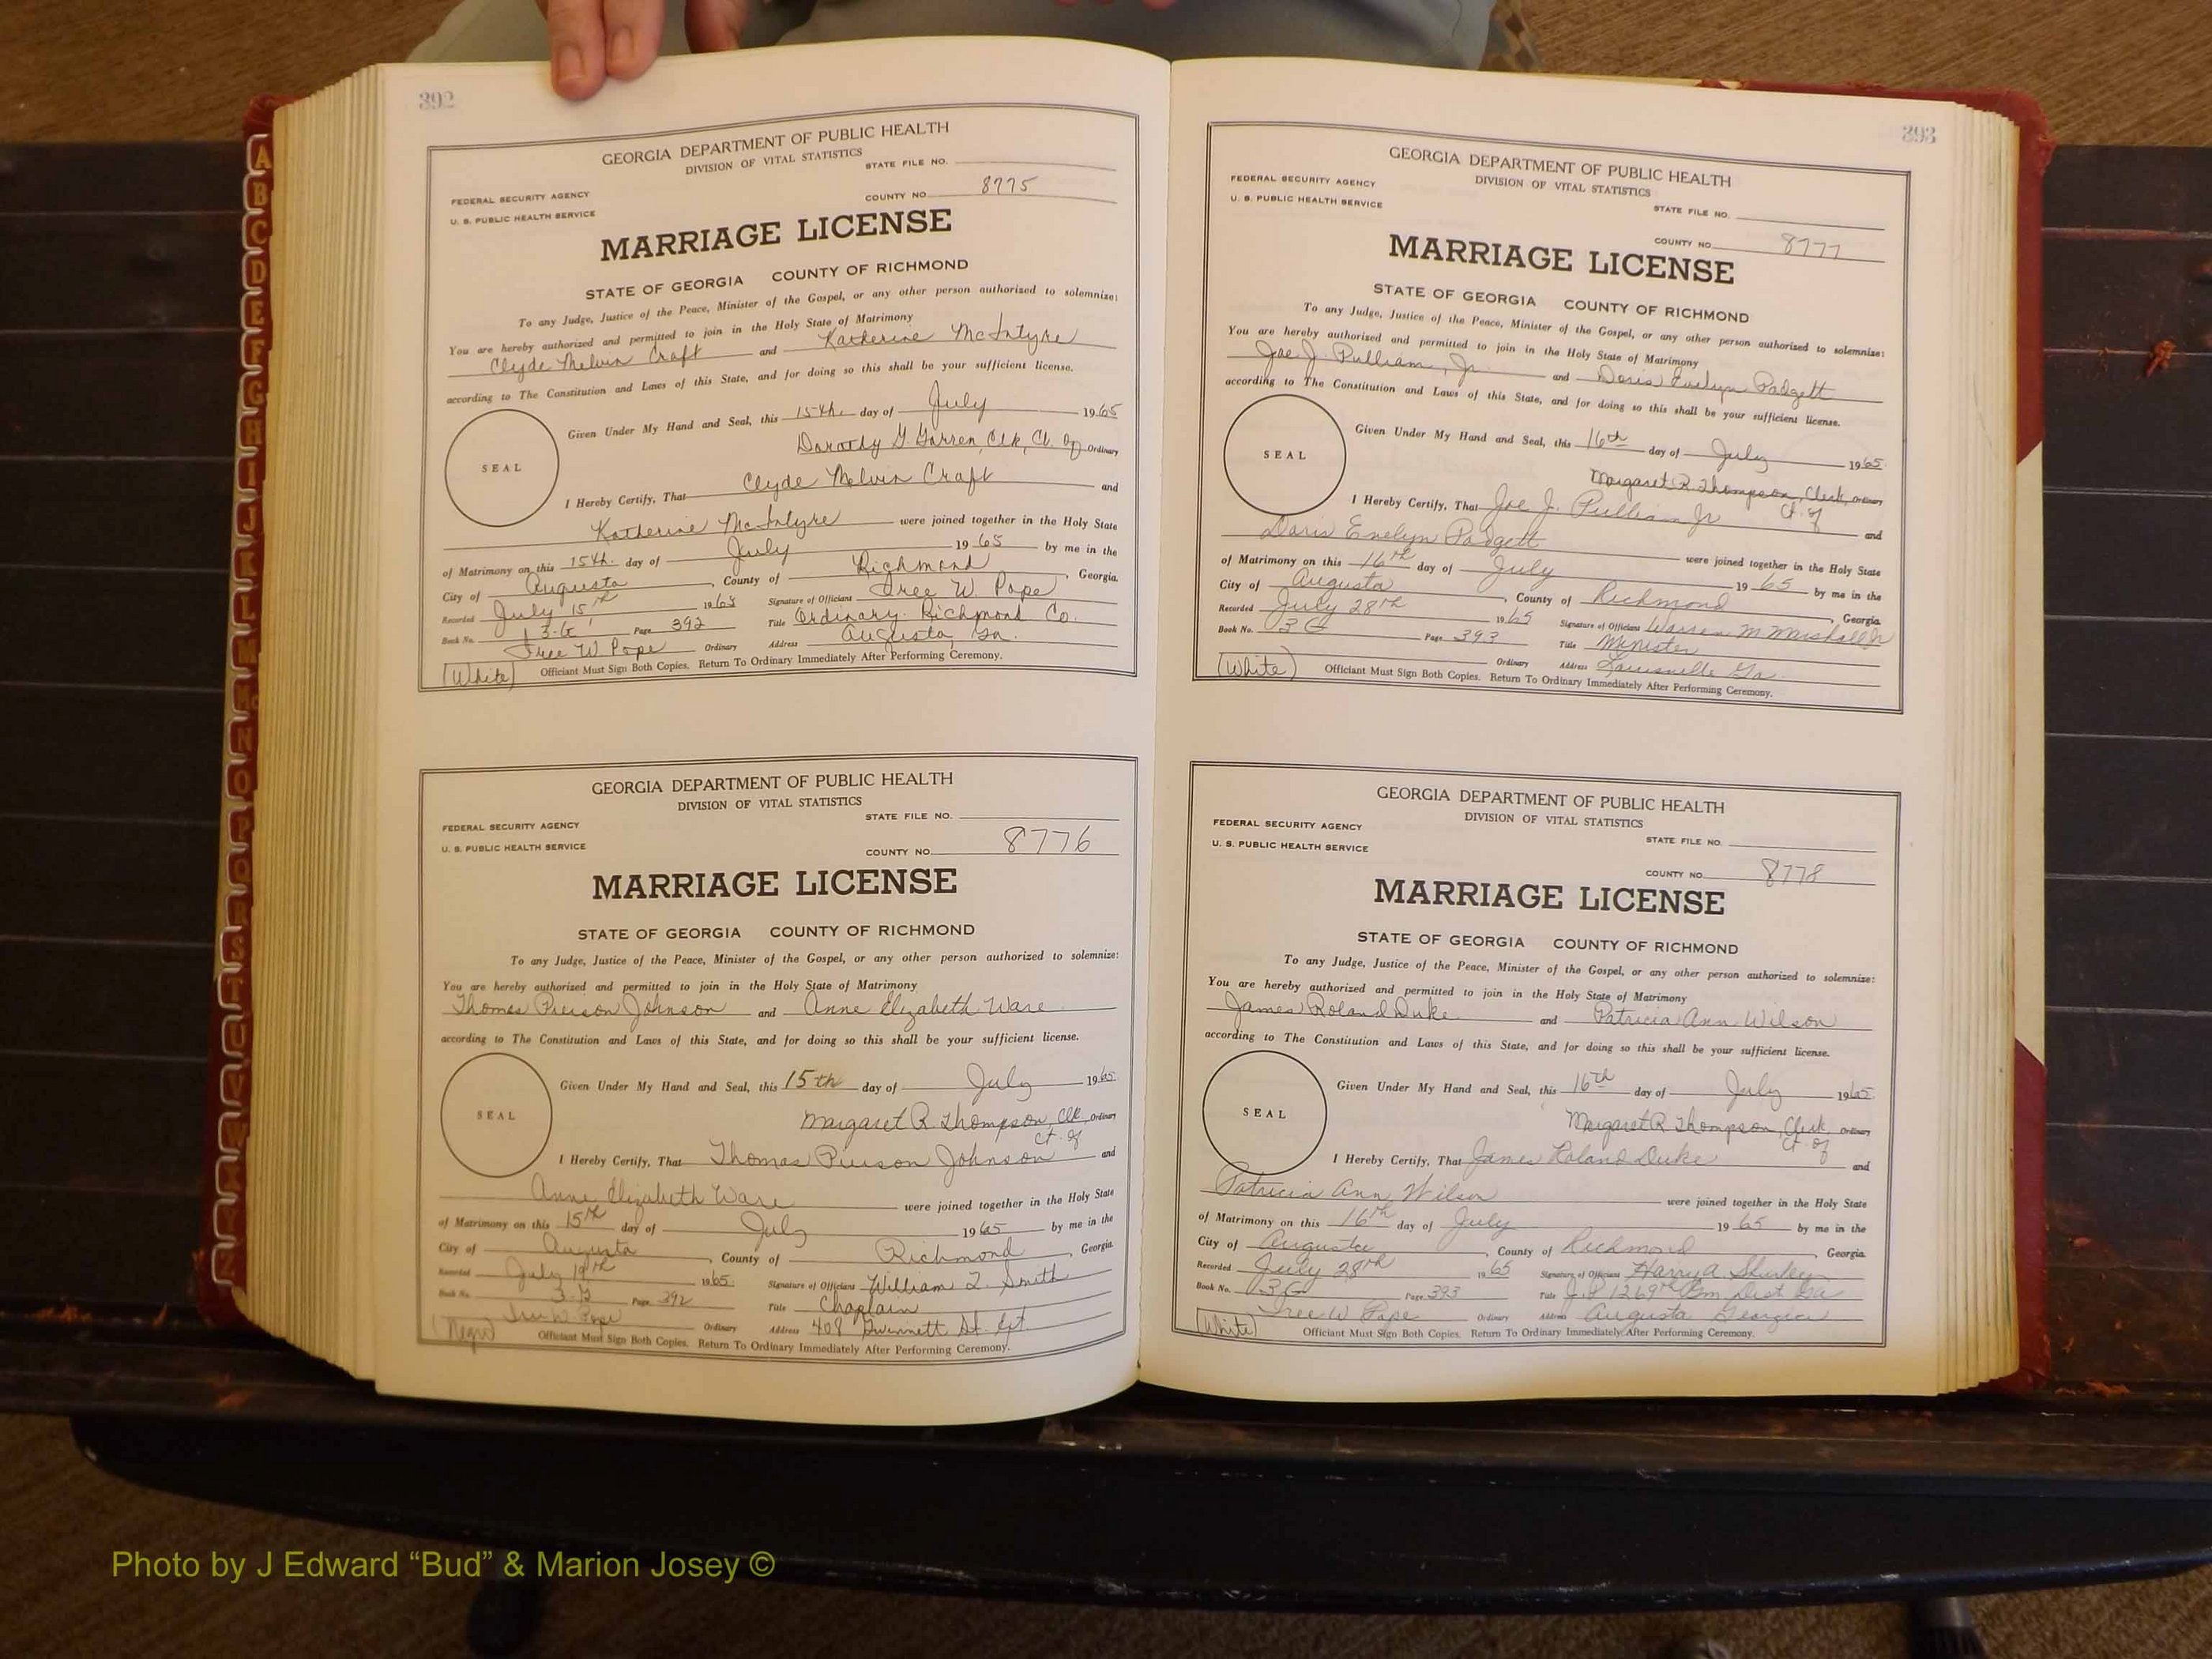 392
GEORGIA DEPARTMENT OF PUBLIC HEALTH
DIVISION OF VITAL STATISTICS
STATE FILE NO.
FEDERAL SECURITY AGENCY
COUNTY NO. 8775
U. S. PUBLIC HEALTH SERVICE
MARRIAGE LICENSE
STATE OF GEORGIA COUNTY OF RICHMOND
To any Judge, Justice of the Peace, Minister of the Gospel, or any other person authorized to solemnize:
You are hereby authorized and permitted to join in the Holy State of Matrimony
Clyde Melvin Craft and Katherine McIntyre
according to The Constitution and Laws of this State, and for doing so this shall be your sufficient license.
Given Under My Hand and Seal, this 15th. day of July 1965
Dorothy G. Garren, Clk, Ct. of Ordinary
SEAL
I Hereby Certify, That Clyde Melvin Craft and
Katherine McIntyre were joined together in the Holy State
of Matrimony on this 15th. day of July 1965 by me in the
City of Augusta, County of Richmond, Georgia.
Recorded July 15th 1965 Signature of Officiant Iree W. Pope
Book No. 3-G Page 392 Title Ordinary Richmond Co.
Iree W Pope Ordinary Address Augusta, Ga.
(White) Officiant Must Sign Both Copies. Return To Ordinary Immediately After Performing Ceremony.
GEORGIA DEPARTMENT OF PUBLIC HEALTH
DIVISION OF VITAL STATISTICS
STATE FILE NO.
FEDERAL SECURITY AGENCY
U. S. PUBLIC HEALTH SERVICE
COUNTY NO. 8776
MARRIAGE LICENSE
STATE OF GEORGIA COUNTY OF RICHMOND
To any Judge, Justice of the Peace, Minister of the Gospel, or any other person authorized to solemnize:
You are hereby authorized and permitted to join in the Holy State of Matrimony
Thomas Pierson Johnson and Anne Elizabeth Ware
according to The Constitution and Laws of this State, and for doing so this shall be your sufficient license.
Given Under My Hand and Seal, this 15th day of July 1965
Margaret R. Thompson, Clk, Ordinary
Ct. of
SEAL
I Hereby Certify, That Thomas Pierson Johnson and
Anne Elizabeth Ware were joined together in the Holy State
of Matrimony on this 15th day of July 1965 by me in the
City of Augusta, County of Richmond, Georgia
Recorded July 19th 1965. Signature of Officiant William L. Smith
Book No. 3-G Page 392 Title Chaplain
Iree W. Pope Ordinary Address 408 Gwinnett St. Ext
(Negro) Officiant Must Sign Both Copies. Return To Ordinary Immediately After Performing Ceremony.
393
GEORGIA DEPARTMENT OF PUBLIC HEALTH
DIVISION OF VITAL STATISTICS
FEDERAL SECURITY AGENCY
U. S. PUBLIC HEALTH SERVICE
STATE FILE NO.
COUNTY NO. 8777
MARRIAGE LICENSE
STATE OF GEORGIA COUNTY OF RICHMOND
To any Judge, Justice of the Peace, Minister of the Gospel, or any other person authorized to solemnize:
You are hereby authorized and permitted to join in the Holy State of Matrimony
Joe J. Pulliam, Jr. and Doris Evelyn Padgett
according to The Constitution and Laws of this State, and for doing so this shall be your sufficient license.
Given Under My Hand and Seal, this 16th day of July 1965
Margaret R. Thompson, Clerk, Ordinary
Ct. of
SEAL
I Hereby Certify, That Joe J. Pulliam Jr and
Doris Evelyn Padgett were joined together in the Holy State
of Matrimony on this 16th day of July 1965 by me in the
City of Augusta, County of Richmond, Georgia
Recorded July 28th 1965 Signature of Officiant Warren M Marshall Jr
Book No. 3 G Page 393 Title Minister
Ordinary Address Louisville Ga.
(White) Officiant Must Sign Both Copies. Return To Ordinary Immediately After Performing Ceremony.
GEORGIA DEPARTMENT OF PUBLIC HEALTH
DIVISION OF VITAL STATISTICS
FEDERAL SECURITY AGENCY
U. S. PUBLIC HEALTH SERVICE
STATE FILE NO.
COUNTY NO. 8778
MARRIAGE LICENSE
STATE OF GEORGIA COUNTY OF RICHMOND
To any Judge, Justice of the Peace, Minister of the Gospel, or any other person authorized to solemnize:
You are hereby authorized and permitted to join in the Holy State of Matrimony
James Roland Duke and Patricia Ann Wilson
according to The Constitution and Laws of this State, and for doing so this shall be your sufficient license.
Given Under My Hand and Seal, this 16th day of July 1965
Margaret R Thompson, Clerk, Ordinary
Ct. of
SEAL
I Hereby Certify, That James Roland Duke and
Patricia Ann Wilson were joined together in the Holy State
of Matrimony on this 16th day of July 1965 by me in the
City of Augusta, County of Richmond, Georgia
Recorded July 28th 1965 Signature of Officiant Harry A. Shurley
Book No. 3G Page 393 Title J.P. 1269th Gm Dist Ga
Iree W Pope Ordinary Address Augusta Georgia
(White) Officiant Must Sign Both Copies. Return To Ordinary Immediately After Performing Ceremony.
A
B
C
D
E
F
G
H
I
J
K
L
M
Mc
N
O
P
Q
R
S
T
U
V
W
X
Y
Z
Photo by J Edward “Bud” & Marion Josey ©